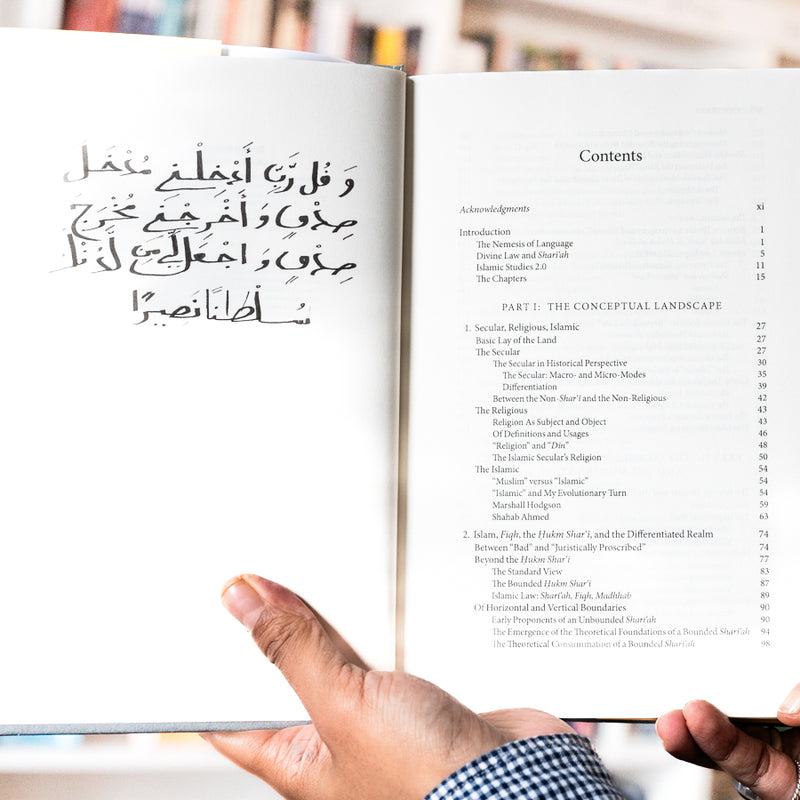 وَ قُل رَّبِّ أَدْخِلْنِي مُدْخَلَ
صِدْقٍ وَ أَخْرِجْنِي مُخْرَجَ
صِدْقٍ وَ اجْعَل لِّي مِن لَّدُنكَ
سُلْطَانًا نَصِيرًا
Contents
Acknowledgments xi
Introduction 1
The Nemesis of Language 1
Divine Law and Sharī‘ah 5
Islamic Studies 2.0 11
The Chapters 15
PART I: THE CONCEPTUAL LANDSCAPE
1. Secular, Religious, Islamic 27
Basic Lay of the Land 27
The Secular 27
The Secular in Historical Perspective 30
The Secular: Macro- and Micro-Modes 35
Differentiation 39
Between the Non-Shar‘ī and the Non-Religious 42
The Religious 43
Religion As Subject and Object 43
Of Definitions and Usages 46
“Religion” and “Dīn” 48
The Islamic Secular’s Religion 50
The Islamic 54
“Muslim” versus “Islamic” 54
“Islamic” and My Evolutionary Turn 54
Marshall Hodgson 59
Shahab Ahmed 63
2. Islam, Fiqh, the Ḥukm Shar‘ī, and the Differentiated Realm 74
Between “Bad” and “Juristically Proscribed” 74
Beyond the Ḥukm Shar‘ī 77
The Standard View 83
The Bounded Ḥukm Shar‘ī 87
Islamic Law: Sharī‘ah, Fiqh, Madhhab 89
Of Horizontal and Vertical Boundaries 90
Early Proponents of an Unbounded Sharī‘ah 90
The Emergence of the Theoretical Foundations of a Bounded Sharī‘ah 94
The Theoretical Consummation of a Bounded Sharī‘ah 98